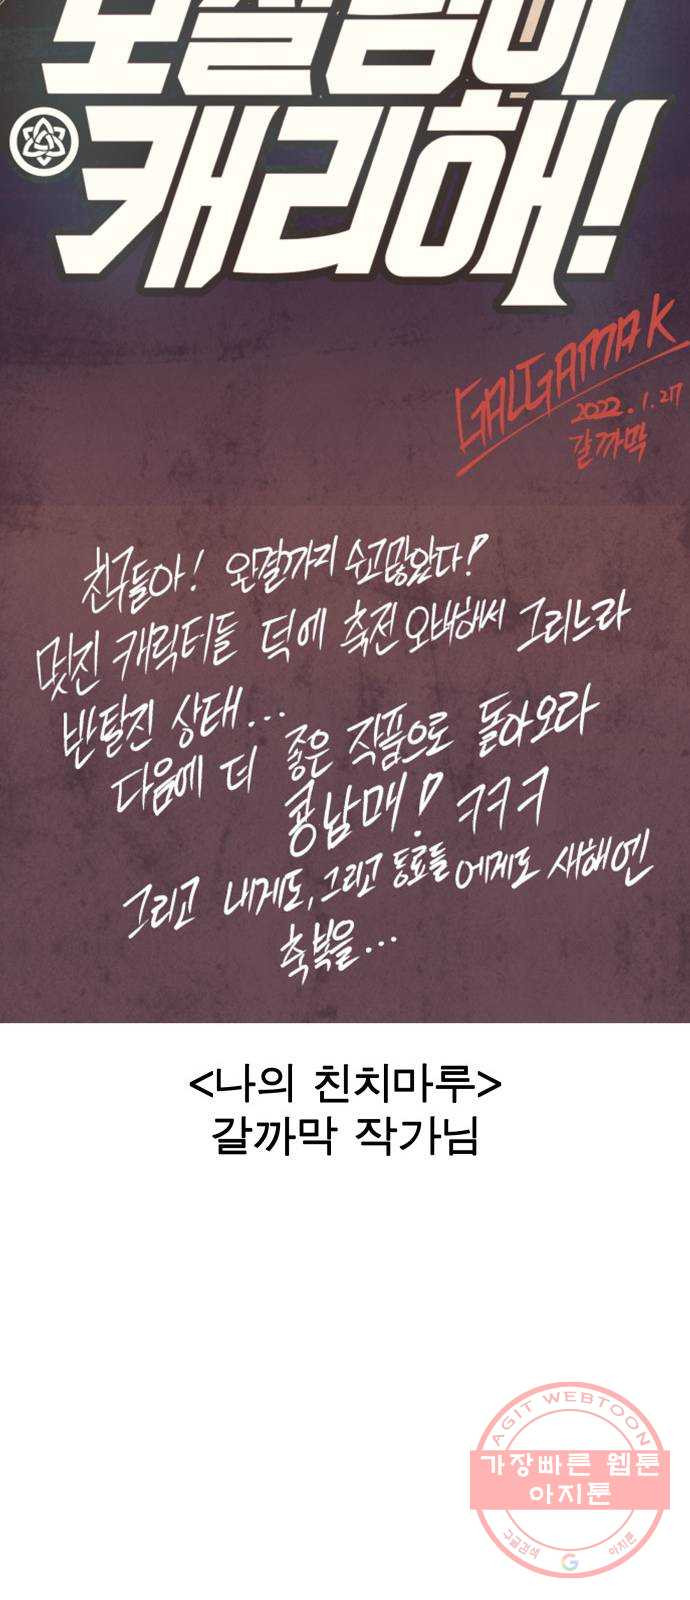 보살님이
캐리해!
GALGAMAK
2022.1.27
갈까막
친구들아! 완결까지 수고많았다!
멋진 캐릭터들 덕에 축전 오바해서 그리느라
반탈진 상태...
다음에 더 좋은 작품으로 돌아오라
콩남매! ㅋㅋㅋ
그리고 내게도, 그리고 동료들에게도 새해엔
축복을...
<나의 친치마루>
갈까막 작가님
AGIT WEBTOON
가장빠른 웹툰
아지툰
구글검색 G 아지툰